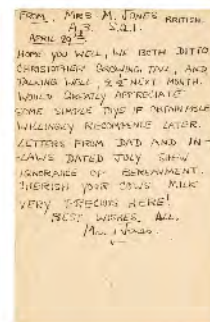 FROM. MRS M. JONES BRITISH.
A.3. S.Q.1.
APRIL 29
HOPE YOU WELL, WE BOTH DITTO
CHRISTOPHER GROWING TALL, AND
TALKING WELL, 2½ NEXT MONTH.
WOULD GREATLY APPRECIATE
SOME SIMPLE TOYS IF OBTAINABLE
WILLINGLY RECOMPENCE LATER.
LETTERS FROM DAD AND IN-
LAWS DATED JULY SHEW
IGNORANCE OF BEREAVEMENT.
CHERISH YOUR COWS. MILK
VERY PRECIOUS HERE!
BEST WISHES, ALL.
Jones.